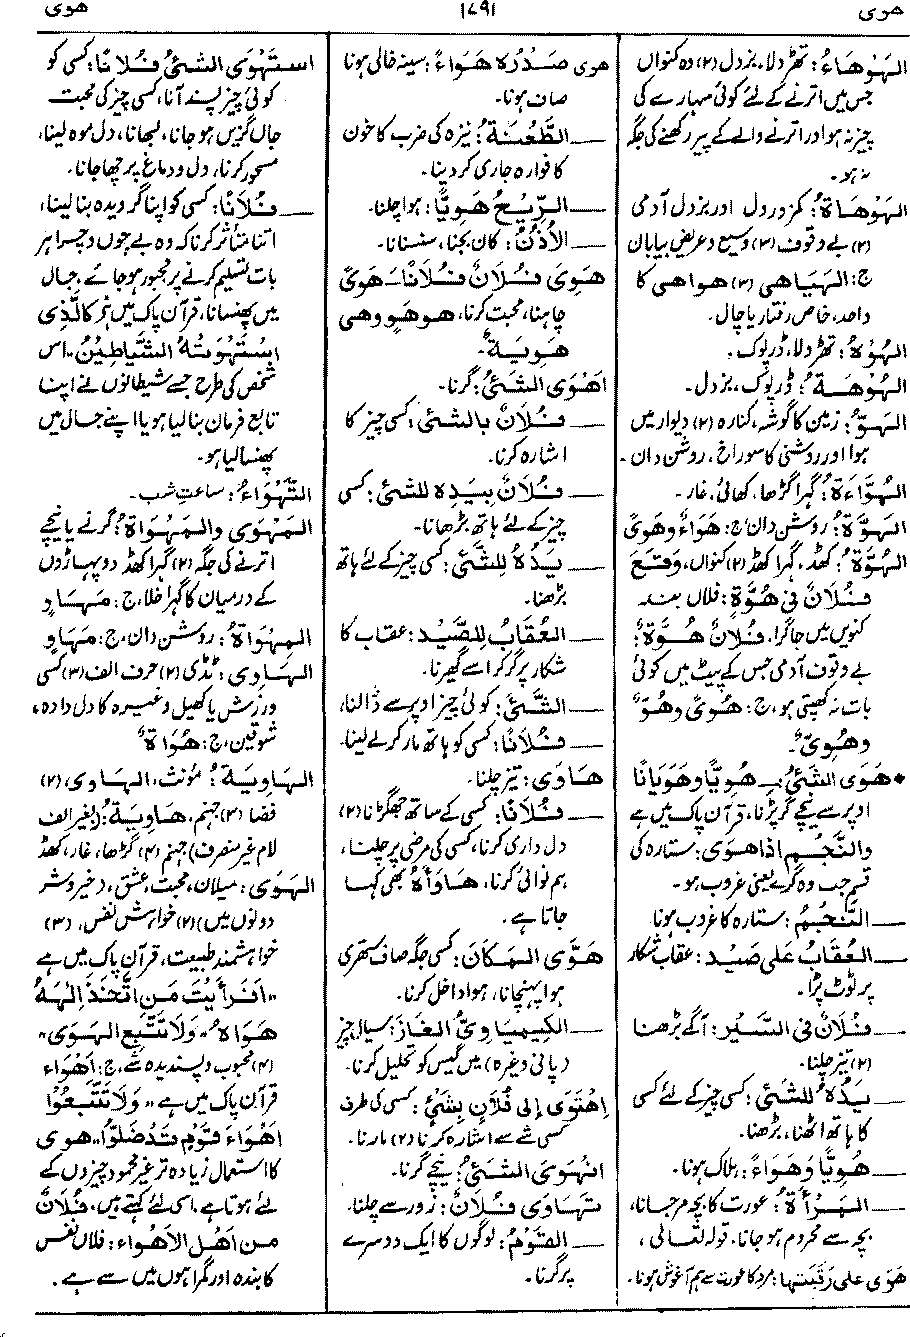 ھوی
۱۷۹۱
ھوی
الہَوْھَاءُ: تھڑدلا، بزدل (۲) وہ کنواں
جس میں اترنے کے لئے کوئی سہارے کی
چیز نہ ہو اور اترنے والے کے پیر رکھنے کی جگہ
نہ ہو۔
الہَوْھَاۃُ: کمزور دل اور بزدل آدمی
(۲) بے وقوف (۳) وسیع و عریض بیابان
ج: الہَیَاھِی (۳) ھواھی کا
واحد، خاص رفتار یا چال۔
الہُوْہُ: تھڑدلا، ڈرپوک۔
الہُوْھَۃُ: ڈرپوک، بزدل۔
الہَوُّ: زمین کا گوشہ، کنارہ (۲) دیوار میں
ہوا اور روشنی کا سوراخ، روشن دان۔
الہُوَّاءَۃُ: گہرا گڑھا، کھائی، غار۔
الہَوَّۃُ: روشن دان ج: ھَوَاءٌ وھَویً
الہُوَّۃُ: کھڈ، گہرا کھڈ (۲) کنواں، وَقَعَ
فُلَانٌ فی ھُوَّۃٍ: فلاں بند
کنویں میں جاگرا، فُلانٌ ھُوَّۃٌ:
بے وقوف آدمی جس کے پیٹ میں کوئی
بات نہ کھپتی ہو، ج: ھُویً وھُوٌّ
وھُوِیٌّ۔
* ھَوَی الشَّیْئُ ــِـ ھُوِیًّا وھَوَیَانًا
اوپر سے نیچے گر پڑنا، قرآن پاک میں ہے
والنَّجْمِ اِذَا ھَوٰی: ستارہ کی
قسم جب وہ گرے یعنی غروب ہو۔
ــــ النَّجْمُ: ستارہ کا غروب ہونا
ــــ العُقَابُ عَلیٰ صَیْدٍ: عقاب شکار
پر ٹوٹ پڑا۔
ــــ فُلَانٌ فی السَّیْرِ: آگے بڑھنا
(۲) تیز چلنا۔
ــــ یَدُہٗ للشَّیْئِ: کسی چیز کے لئے کسی
کا ہاتھ اٹھنا، بڑھنا۔
ــــ ھُوِیًّا وَھَوَاءً: ہلاک ہونا۔
ــــ المَرْأَۃُ: عورت کا بچہ مرجانا،
بچہ سے محروم ہوجانا، قولہ تعالیٰ،
ھَوَی علی رَقَبَتِہا: مرد کا عورت سے ہم آغوش ہونا۔
ھوی صَدْرُہٗ ھَوَاءً: سینہ خالی ہونا
صاف ہونا۔
ــــ الطَّعْنَۃُ: نیزہ کی ضرب کا خون
کا فوارہ جاری کردینا۔
ــــ الرِّیْحُ ھَوِیًّا: ہوا چلنا۔
ــــ الأُذُنُ: کان بجنا، سنسنانا۔
ھَوِیَ فُلَانٌ فُلَانًا ــَـ ھَویً
چاہنا، محبت کرنا، ھو ھَوٍ وھی
ھَوِیَۃٌ۔
اَھْوَی الشَّیْئُ: گرنا۔
ــــ فُلَانٌ بالشَّیْئِ: کسی چیز کا
اشارہ کرنا۔
ــــ فُلَانٌ بِیَدِہٖ للشَّیْئِ: کسی
چیز کے لئے ہاتھ بڑھانا۔
ــــ یَدُہٗ لِلشَّیْئِ: کسی چیز کے لئے ہاتھ
بڑھنا۔
ــــ العُقَابُ لِلصَّیْدِ: عقاب کا
شکار پر گر کر اسے گھیرنا۔
ــــ الشَّیْئَ: کوئی چیز اوپر سے ڈالنا،
ــــ فُلَانًا: کسی کو ہاتھ مار کر لے لینا۔
ھَاوٰی: تیز چلنا۔
ــــ فُلَانًا: کسی کے ساتھ جھگڑنا (۲)
دل داری کرنا، کسی کی مرضی پر چلنا،
ہم نوائی کرنا، ھَاوَأَہٗ بھی کہا
جاتا ہے۔
ھَوَّی المَکَانَ: کسی جگہ صاف ستھری
ہوا پہنچانا، ہوا داخل کرنا۔
ــــ الکِیمیَاوِیُّ الغَازَ: سیال چیز
(پانی وغیرہ) میں گیس کو تحلیل کرنا۔
اِھْتَوَی إلی فُلَانٍ بِشَیْئٍ: کسی کی طرف
کسی شے سے اشارہ کرنا (۲) مارنا۔
انْہَوَی الشَّیْئُ: نیچے گرنا۔
تَہَاوَی فُلَانٌ: زور سے چلنا۔
ــــ القَوْمُ: لوگوں کا ایک دوسرے
پر گرنا۔
اسْتَہْوَی الشَّیْئُ فُلَانًا: کسی کو
کوئی چیز پسند آنا، کسی چیز کی محبت
جاں گزیں ہوجانا، لبھانا، دل موہ لینا،
مسحور کرنا، دل و دماغ پر چھاجانا۔
ــــ فُلَانًا: کسی کو اپنا گرویدہ بنالینا،
اتنا متأثر کرنا کہ وہ بے چوں و چرا ہر
بات تسلیم کرنے پر مجبور ہوجائے، جال
میں پھنسانا، قرآن پاک میں ہے کَالَّذِی
اسْتَہْوَتْہُ الشَّیَاطِیْنُ، اس
شخص کی طرح جسے شیطانوں نے اپنا
تابع فرمان بنا لیا ہو یا اپنے جال میں
پھنسا لیا ہو۔
التَّہْوَاءُ: ساعتِ شب۔
المَہْوَی والمَہْوَاۃُ: گرنے یا نیچے
اترنے کی جگہ (۲) گہرا کھڈ دو پہاڑوں
کے درمیان کا گہرا خلا، ج: مَہَاوٍ
المِہْوَاۃُ: روشن دان، ج: مَہَاوٍ
الہَاوِی: ٹڈی (۲) حرف الف (۳) کسی
ورزش یا کھیل وغیرہ کا دل دادہ،
شوقین، ج: ھُوَاۃٌ
الہَاوِیَۃُ: مؤنث، الہاوی، (۲)
فضا (۳) جہنم، ھَاوِیَۃُ: (بغیر الف
لام غیر منصرف) جہنم (۴) گڑھا، غار، کھڈ
الہَوَی: میلان، محبت، عشق، (خیر و شر
دونوں میں) (۲) خواہش نفس، (۳)
خواہشمند طبیعت، قرآن پاک میں ہے
"اَفَرَأَیْتَ مَنِ اتَّخَذَ اِلٰہَہٗ
ھَوَاہُ" "وَلَا تَتَّبِعِ الْہَوٰی"
(۴) محبوب و پسندیدہ شے، ج: اَھْوَاء
قرآن پاک میں ہے "وَلَا تَتَّبِعُوْا
اَھْوَاءَ قَوْمٍ قَدْ ضَلُّوْا" ھوی
کا استعمال زیادہ تر غیر محمود چیزوں کے
لئے ہوتا ہے، اسی لئے کہتے ہیں، فُلَانٌ
مِن اَھْلِ الاَھْوَاء: فلاں نفس
کا بندہ اور گمراہوں میں سے ہے۔